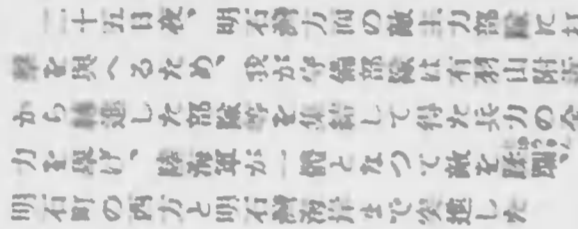 二十五日夜、明石湾方面の敵主力部隊に打
撃を与へるため、我が守備部隊は有羽山附近
から転進した部隊等を集結して得た兵力の全
力を挙げ、陸海軍が一体となつて敵を蹂躙、
明石町の西方と明石湾海岸まで突進した